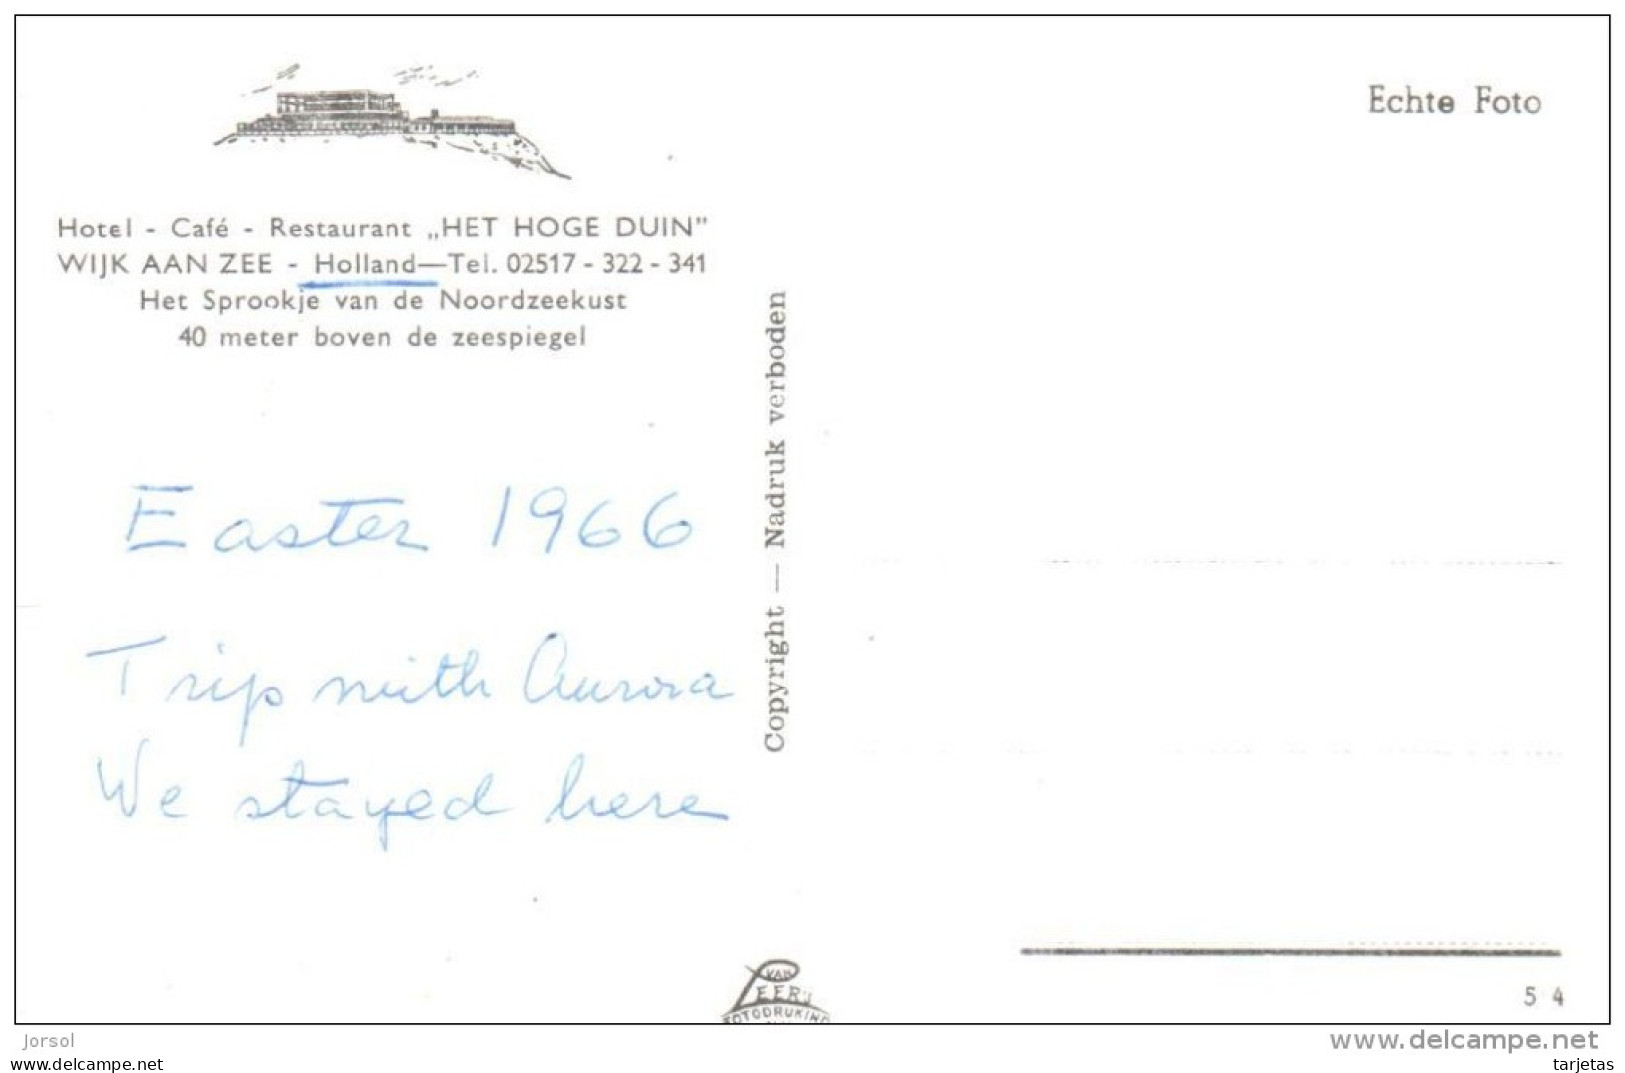 Echte Foto
Hotel - Café - Restaurant „HET HOGE DUIN”
WIJK AAN ZEE - Holland—Tel. 02517 - 322 - 341
Het Sprookje van de Noordzeekust
40 meter boven de zeespiegel
Easter 1966
Trip with Aurora
We stayed here
Copyright — Nadruk verboden
VAN
LEER'S
FOTODRUKIND
5 4
Jorsol
www.delcampe.net
www.delcampe.net
tarjetas